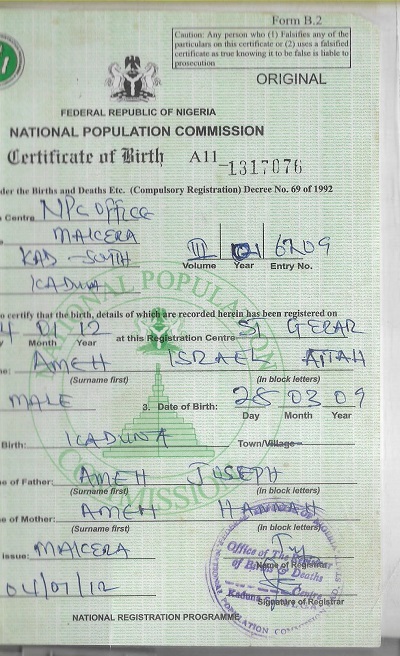 Form B.2
Caution: Any person who (1) Falsifies any of the
particulars on this certificate or (2) uses a falsified
certificate as true knowing it to be false is liable to
prosecution
ORIGINAL
FEDERAL REPUBLIC OF NIGERIA
NATIONAL POPULATION COMMISSION
Certificate of Birth A11 1317076
der the Births and Deaths Etc. (Compulsory Registration) Decree No. 69 of 1992
Centre NPC OFFICE
MAKERA
KAD - SOUTH III 6709
KADUNA Volume Year Entry No.
o certify that the birth, details of which are recorded herein has been registered on
4 01 12 at this Registration Centre ST GERAR
y Month Year
e: AMEH ISRAEL ATTAH
(Surname first) (In block letters)
MALE 3. Date of Birth: 28 03 09
Day Month Year
Birth: KADUNA Town/Village
e of Father: AMEH JOSEPH
(Surname first) (In block letters)
e of Mother: AMEH HANNAH
(Surname first) (In block letters)
issue: MAKERA
Name of Registrar
04/01/12
Signature of Registrar
NATIONAL REGISTRATION PROGRAMME
NATIONAL POPULATION COMMISSION
Office of The Registrar
of Births & Deaths
Kaduna Centre